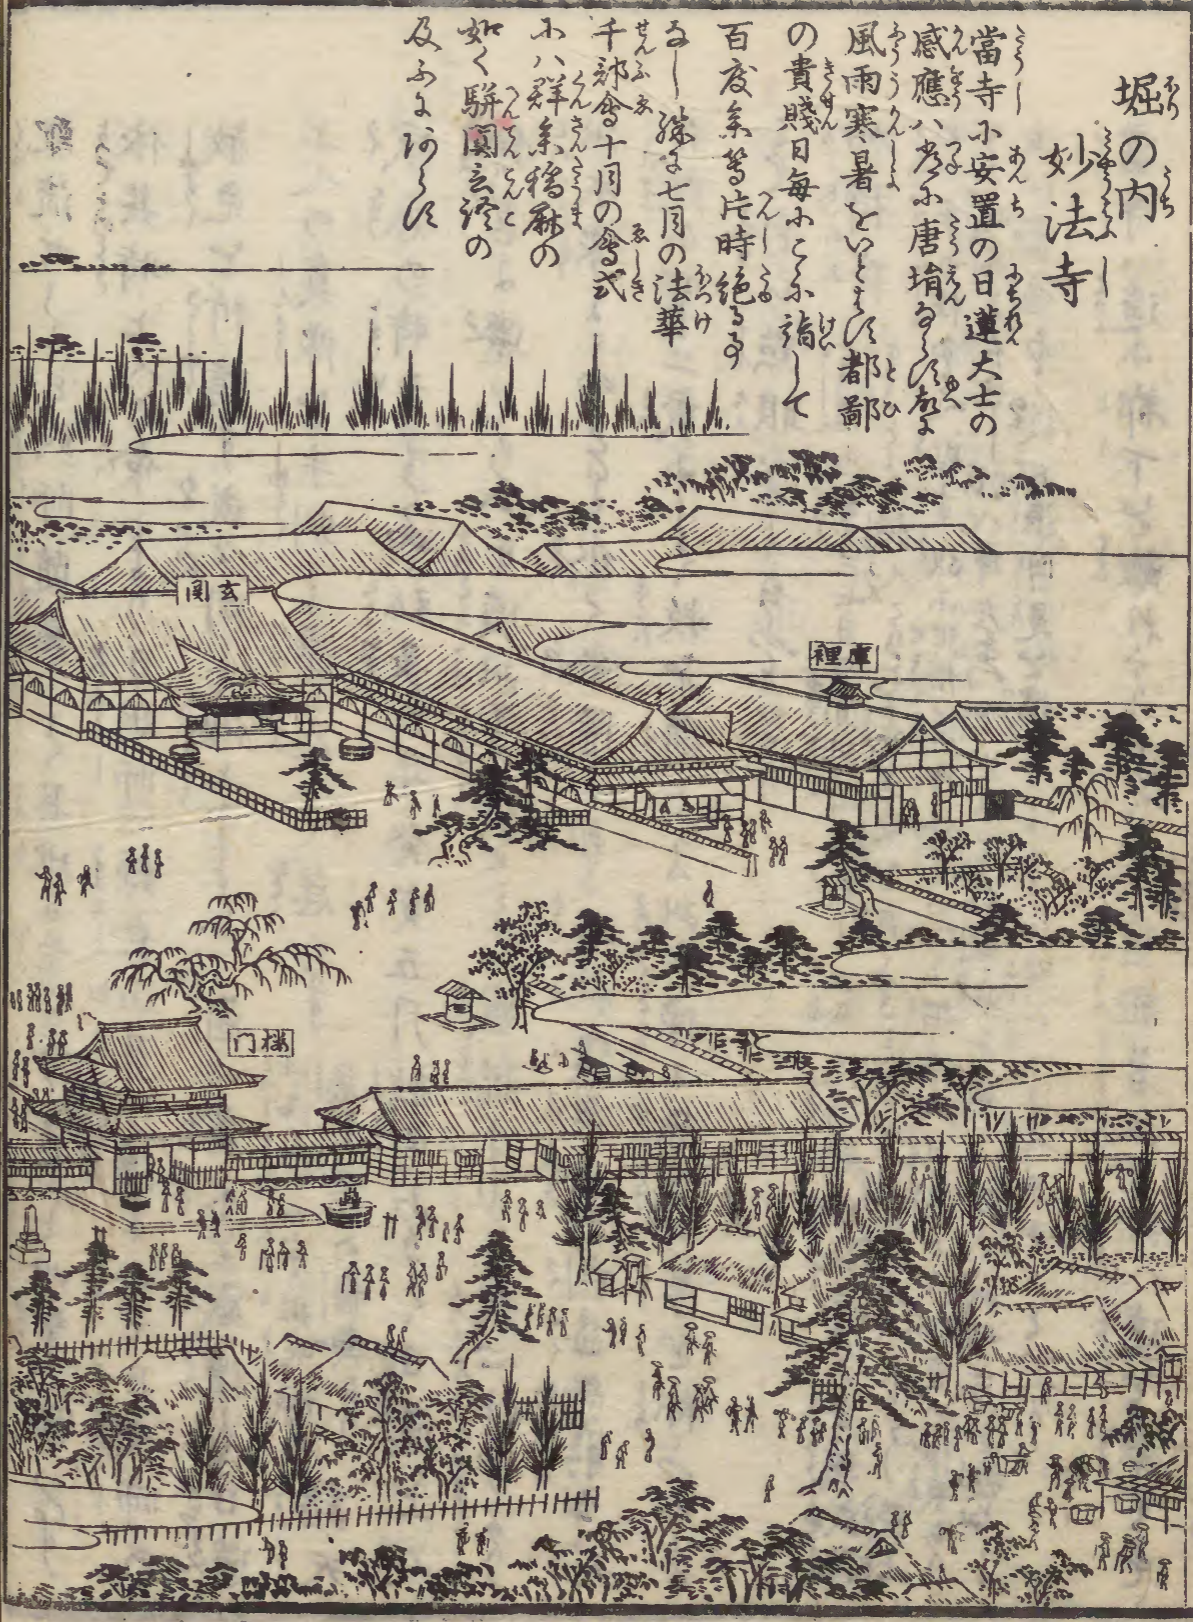 堀の内
妙法寺
當寺に安置の日蓮大士の
感應ハ常に唐捐ならす故に
風雨寒暑をいとはす都鄙
の貴賤日毎にこゝに詣して
百度参等片時絶る事
なし殊に七月の法華
千部會十月の會式
にハ群参稲麻の
如く駢闐言語の
及ふにあらす
玄関
庫裡
楼門